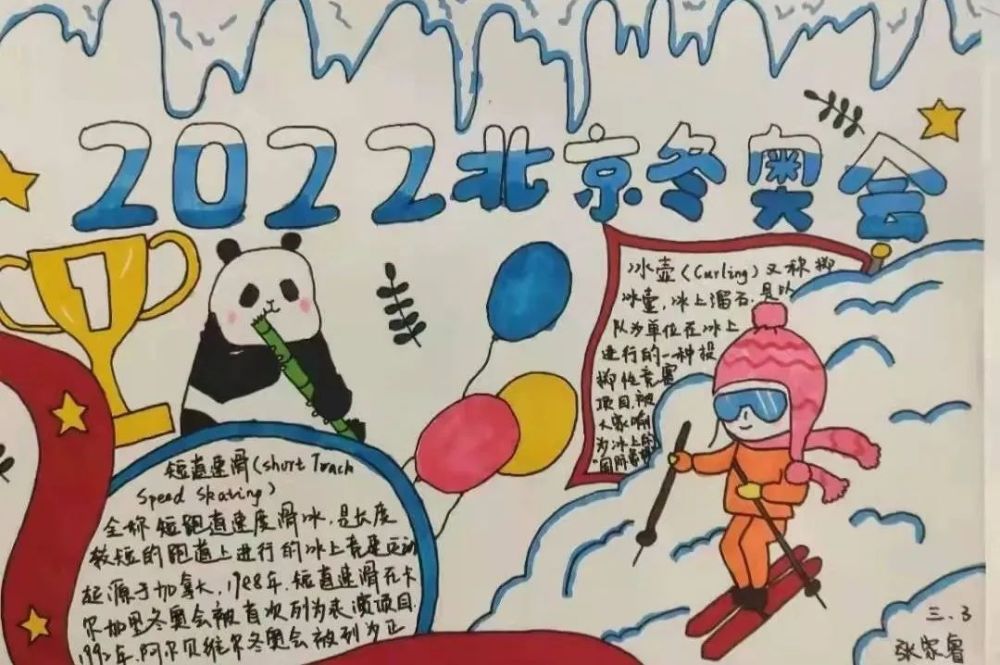 2022北京冬奥会
1
冰壶(Curling)又称掷
冰壶,冰上溜石,是以
队为单位在冰上
进行的一种投
掷性竞赛
项目,被
大家喻
为冰上的
"国际象棋
短道速滑(short Track
Speed Skating)
全称短跑道速度滑冰,是长度
较短的跑道上进行的冰上竞速运动
起源于加拿大,1988年,短道速滑在卡
尔加里冬奥会被首次列为表演项目.
1992年,阿尔贝维尔冬奥会被列为正
三.3
张家睿